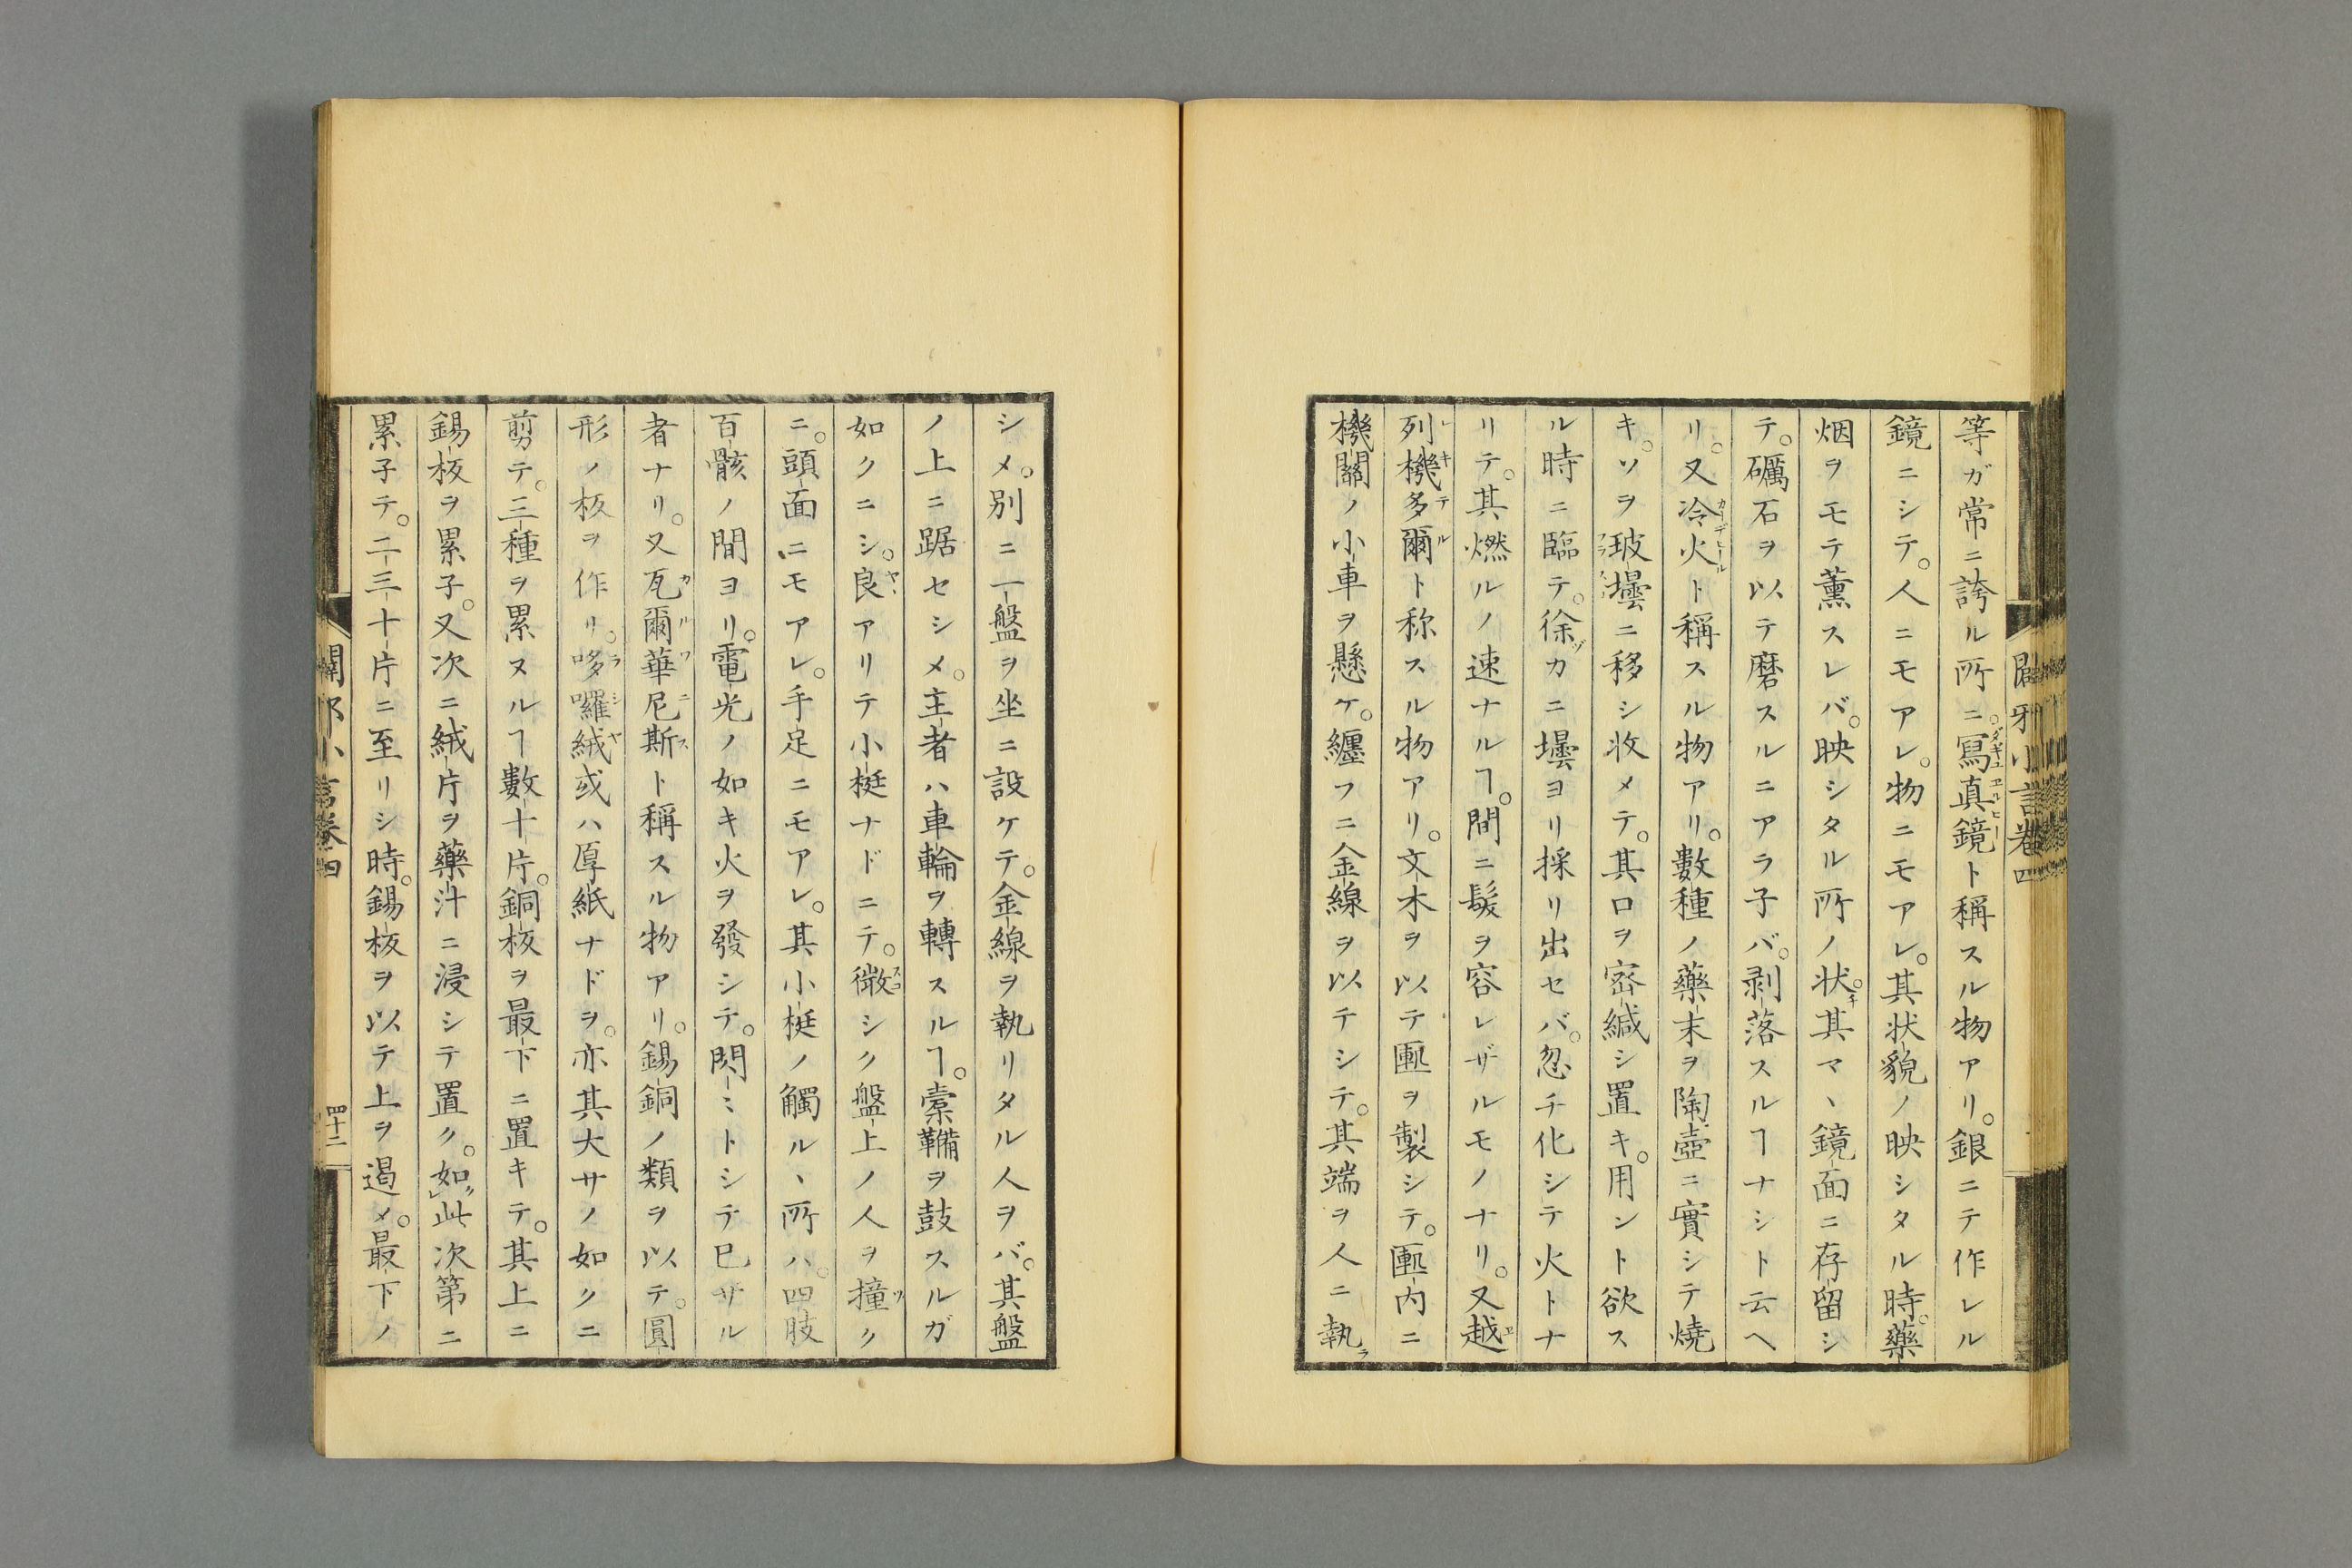 等ガ常ニ誇ル所ニ。寫真鏡ト稱スル物アリ。銀ニテ作レル
鏡ニシテ。人ニモアレ。物ニモアレ。其状貌ノ映シタル時。藥
烟ヲモテ薫スレバ。映シタル所ノ状。其マヽ鏡面ニ存留シ
テ。礪石ヲ以テ磨スルニアラ子バ。剥落スルヿナシト云ヘ
リ。又冷火ト稱スル物アリ。數種ノ藥末ヲ陶壺ニ實シテ燒
キ。ソヲ玻壜ニ移シ收メテ。其口ヲ密緘シ置キ。用ント欲ス
ル時ニ臨テ。徐カニ壜ヨリ採リ出セバ。忽チ化シテ火トナ
リテ。其燃ルノ速ナルヿ。間ニ髮ヲ容レザルモノナリ。又越
列機多爾ト称スル物アリ。文木ヲ以テ匭ヲ製シテ。匭内ニ
機關ノ小車ヲ懸ケ。纏フニ金線ヲ以テシテ。其端ヲ人ニ執
シメ。別ニ一盤ヲ坐ニ設ケテ。金線ヲ執リタル人ヲバ。其盤
ノ上ニ踞セシメ。主者ハ車輪ヲ轉スルヿ。橐鞴ヲ鼓スルガ
如クニシ。良アリテ小梃ナドニテ。微シク盤上ノ人ヲ撞ク
ニ。頭面ニモアレ。手足ニモアレ。其小梃ノ觸ルヽ所ハ。四肢
百骸ノ間ヨリ。電光ノ如キ火ヲ發シテ。閃〻トシテ已ザル
者ナリ。又瓦爾華尼斯ト稱スル物アリ。錫銅ノ類ヲ以テ。圓
形ノ板ヲ作リ。哆囉絨或ハ厚紙ナドヲ。亦其大サノ如クニ
剪テ。三種ヲ累ヌルヿ數十片。銅板ヲ最下ニ置キテ。其上ニ
錫板ヲ累子。又次ニ絨片ヲ藥汁ニ浸シテ置ク。如此次第ニ
累子テ。二三十片ニ至リシ時。錫板ヲ以テ上ヲ遏メ。最下ノ
小言卷四
四十二